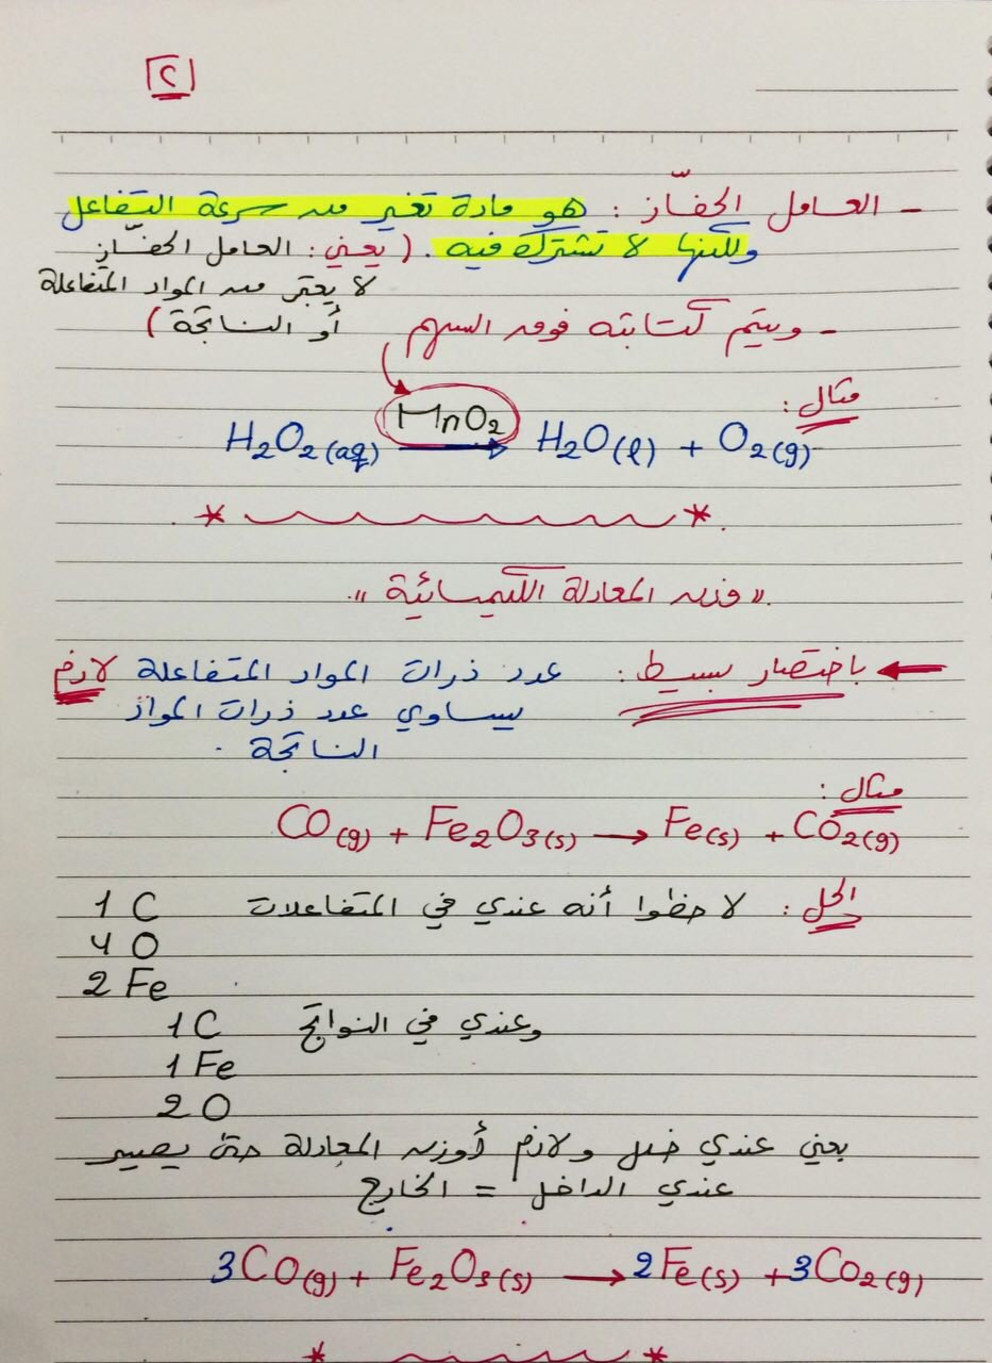 [٢]
- العامل الحفّاز : هو مادة تغير من سرعة التفاعل
ولكنها لا تشترك فيه . ( يعني : العامل الحفّاز
لا يعتبر من المواد المتفاعلة
أو الناتجة )
- ويتم كتابته فوق السهم
مثال :
H₂O₂(aq) MnO₂ → H₂O(l) + O₂(g)
" وزن المعادلة الكيميائية "
← باختصار بسيط : عدد ذرات المواد المتفاعلة لازم
يساوي عدد ذرات المواد
الناتجة .
مثال :
CO(g) + Fe₂O₃(s) → Fe(s) + CO₂(g)
الحل : لاحظوا أنه عندي في المتفاعلات 1 C
4 O
2 Fe
وعندي في النواتج 1 C
1 Fe
2 O
يعني عندي خلل ولازم أوزن المعادلة حتى يصير
عندي الداخل = الخارج
3CO(g) + Fe₂O₃(s) → 2Fe(s) + 3CO₂(g)